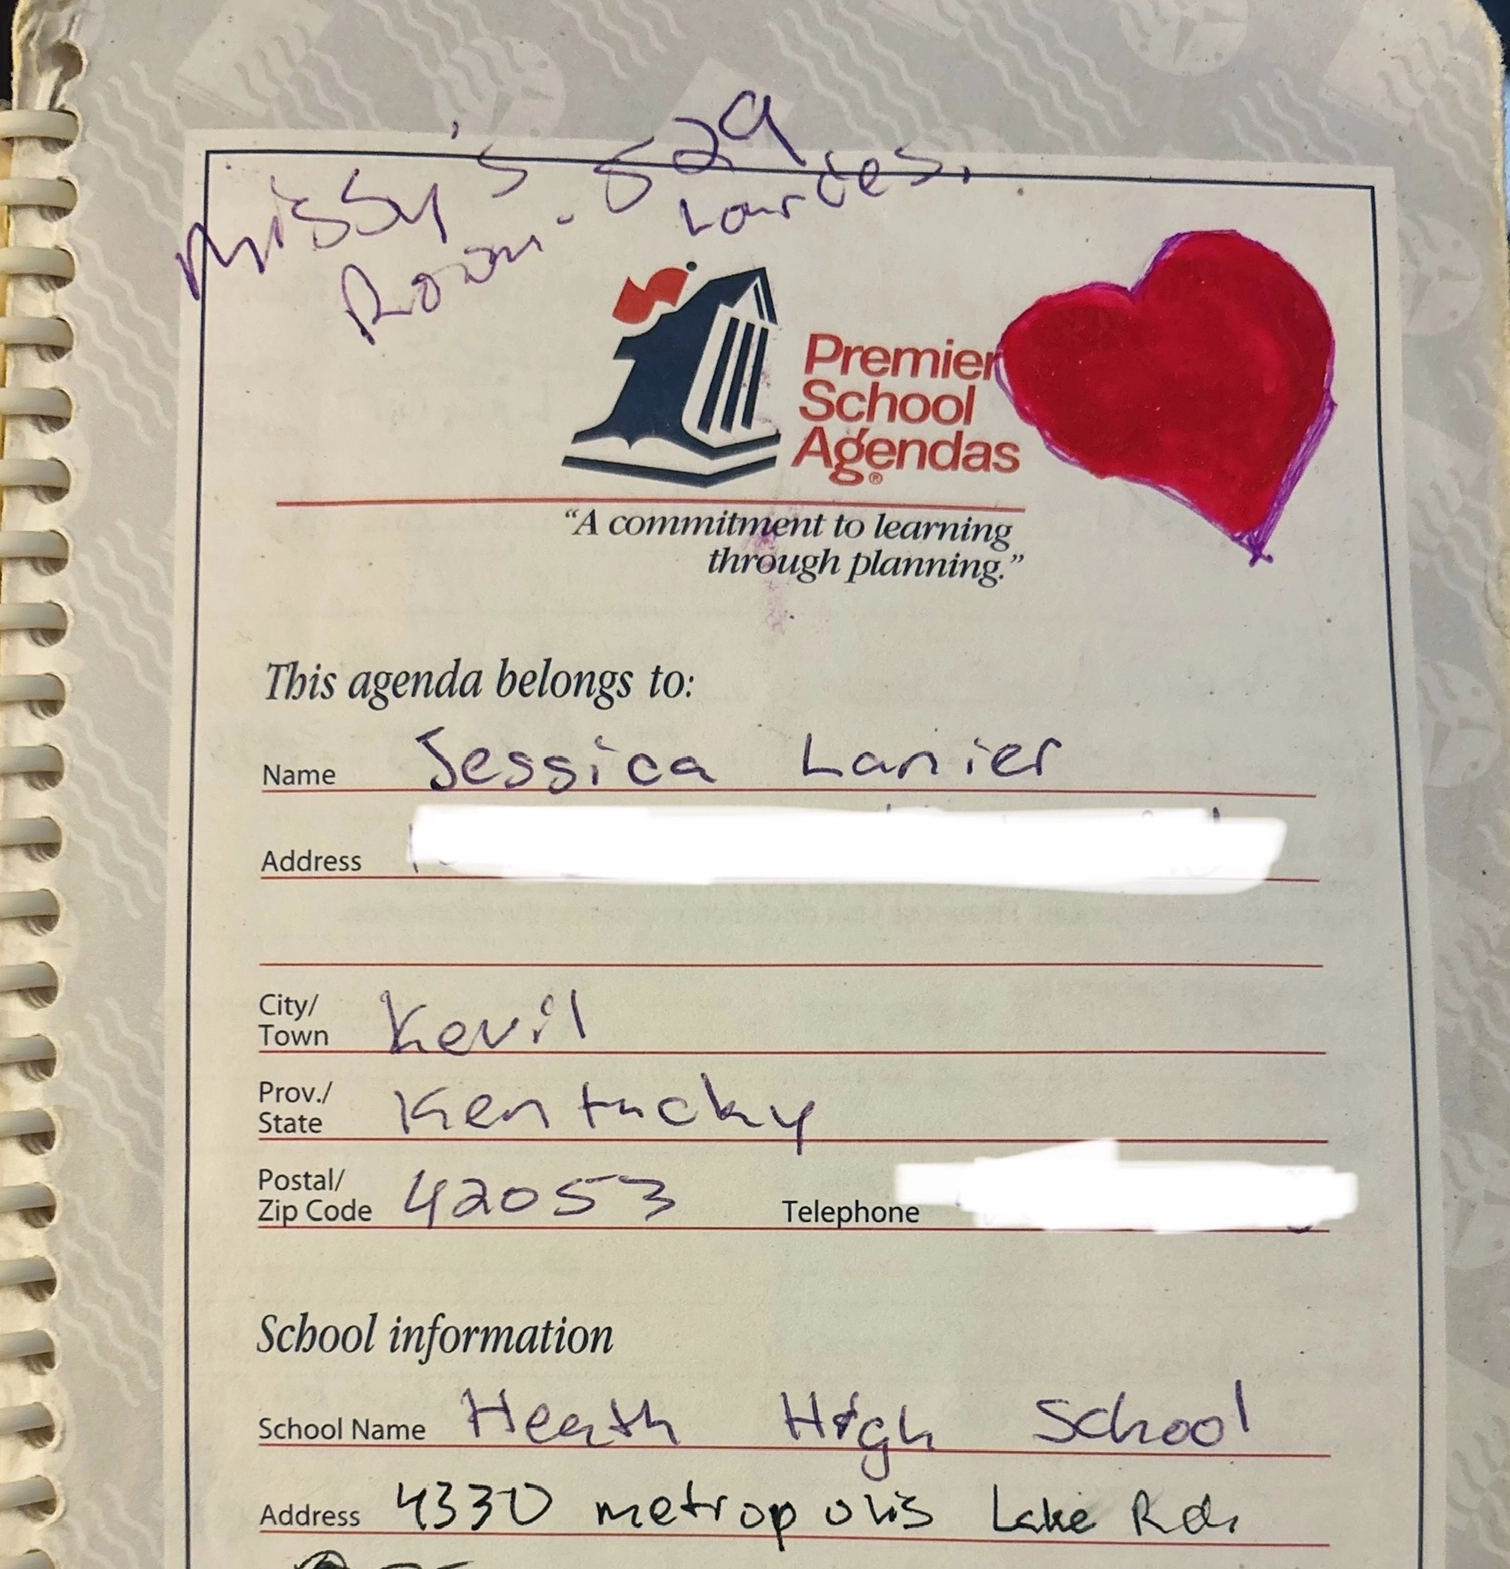 Missy's
Room - 529
Lourdes.
Premier
School
Agendas®
“A commitment to learning
through planning.”
This agenda belongs to:
Name Jessica Lanier
Address
City/
Town Kevil
Prov./
State Kentucky
Postal/
Zip Code 42053 Telephone
School information
School Name Heath High School
Address 4330 metropolis Lake Rd.